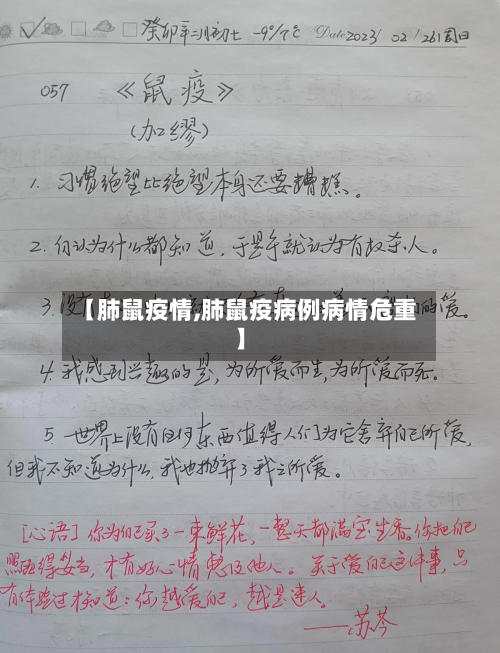 癸卯年二月初七 -9°/7℃ Date 2023/ 02 / 26 周日
057 《鼠疫》
(加缪)
1. 习惯绝望比绝望本身还要糟糕。
2. 自认为什么都知道,于是乎就认为有权杀人。
3. 没有 的爱。
【肺鼠疫情,肺鼠疫病例病情危重
】
4. 我感到兴趣的是,为所爱而生,为所爱而死。
5. 世界上没有任何东西值得人们为它舍弃自己所爱,
但我不知道为什么,我也抛弃了我之所爱。
[心语] 你为自己买了一束鲜花,一整天都满室生香。你把自己
照顾得妥当,才有好心情惠及他人。关于爱自己这件事,只
有体验过才知道:你越爱自己,越是迷人。
——苏芩